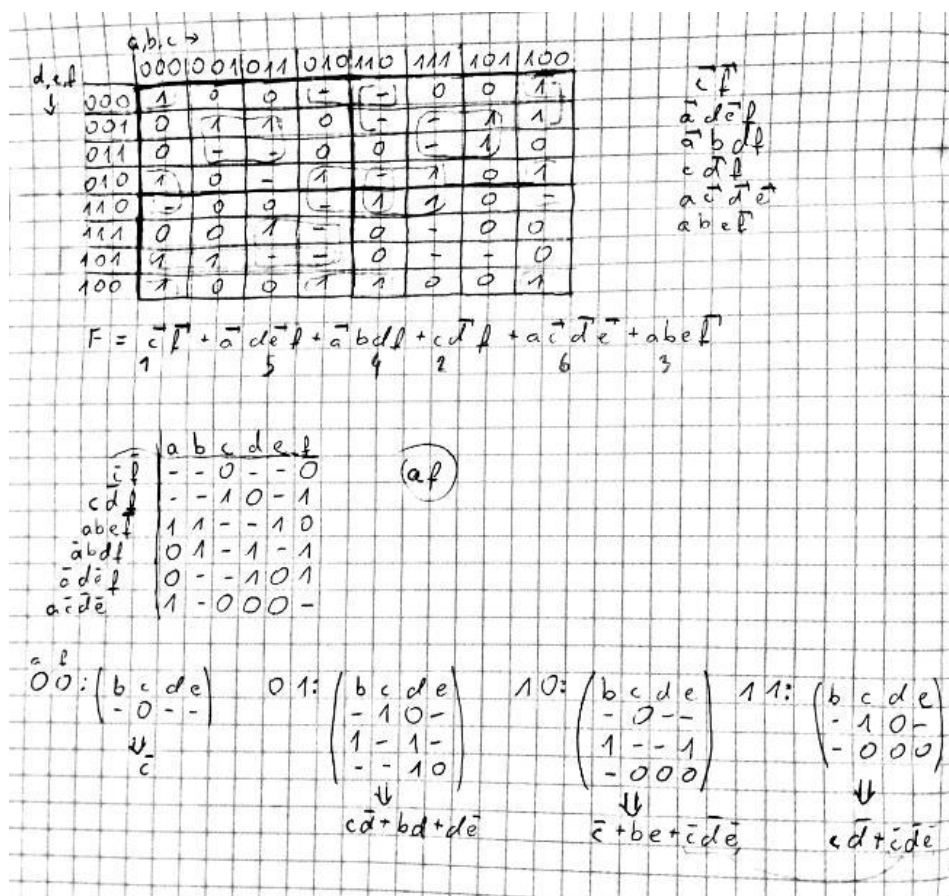 a,b,c →
d,e,f ↓ 000 001 011 010 110 111 101 100
000 1 0 0 - - 0 0 1
001 0 1 1 0 - - 1 1
011 0 - - 0 0 - 1 0
010 1 0 - 1 - 1 0 1
110 - 0 0 - 1 1 0 -
111 0 0 1 - 0 - 0 0
101 1 1 - - 0 - - 0
100 1 0 0 1 1 0 0 1
c̄ f̄
ā d ē f
ā b d f
c d̄ f
a c̄ d̄ ē
a b e f̄
F = c̄ f̄ + ā d ē f + ā b d f + c d̄ f + a c̄ d̄ ē + a b e f̄
1 5 4 2 6 3
a b c d e f
c̄ f̄ - - 0 - - 0
c d̄ f - - 1 0 - 1
a b e f̄ 1 1 - - 1 0
ā b d f 0 1 - 1 - 1
ā d ē f 0 - - 1 0 1
a c̄ d̄ ē 1 - 0 0 0 -
a f
a f
0 0: b c d e
- 0 - -
⇓
c̄
0 1: b c d e
- 1 0 -
1 - 1 -
- - 1 0
⇓
c d̄ + b d + d ē
1 0: b c d e
- 0 - -
1 - - 1
- 0 0 0
⇓
c̄ + b e + c̄ d̄ ē
1 1: b c d e
- 1 0 -
- 0 0 0
⇓
c d̄ + c̄ d̄ ē